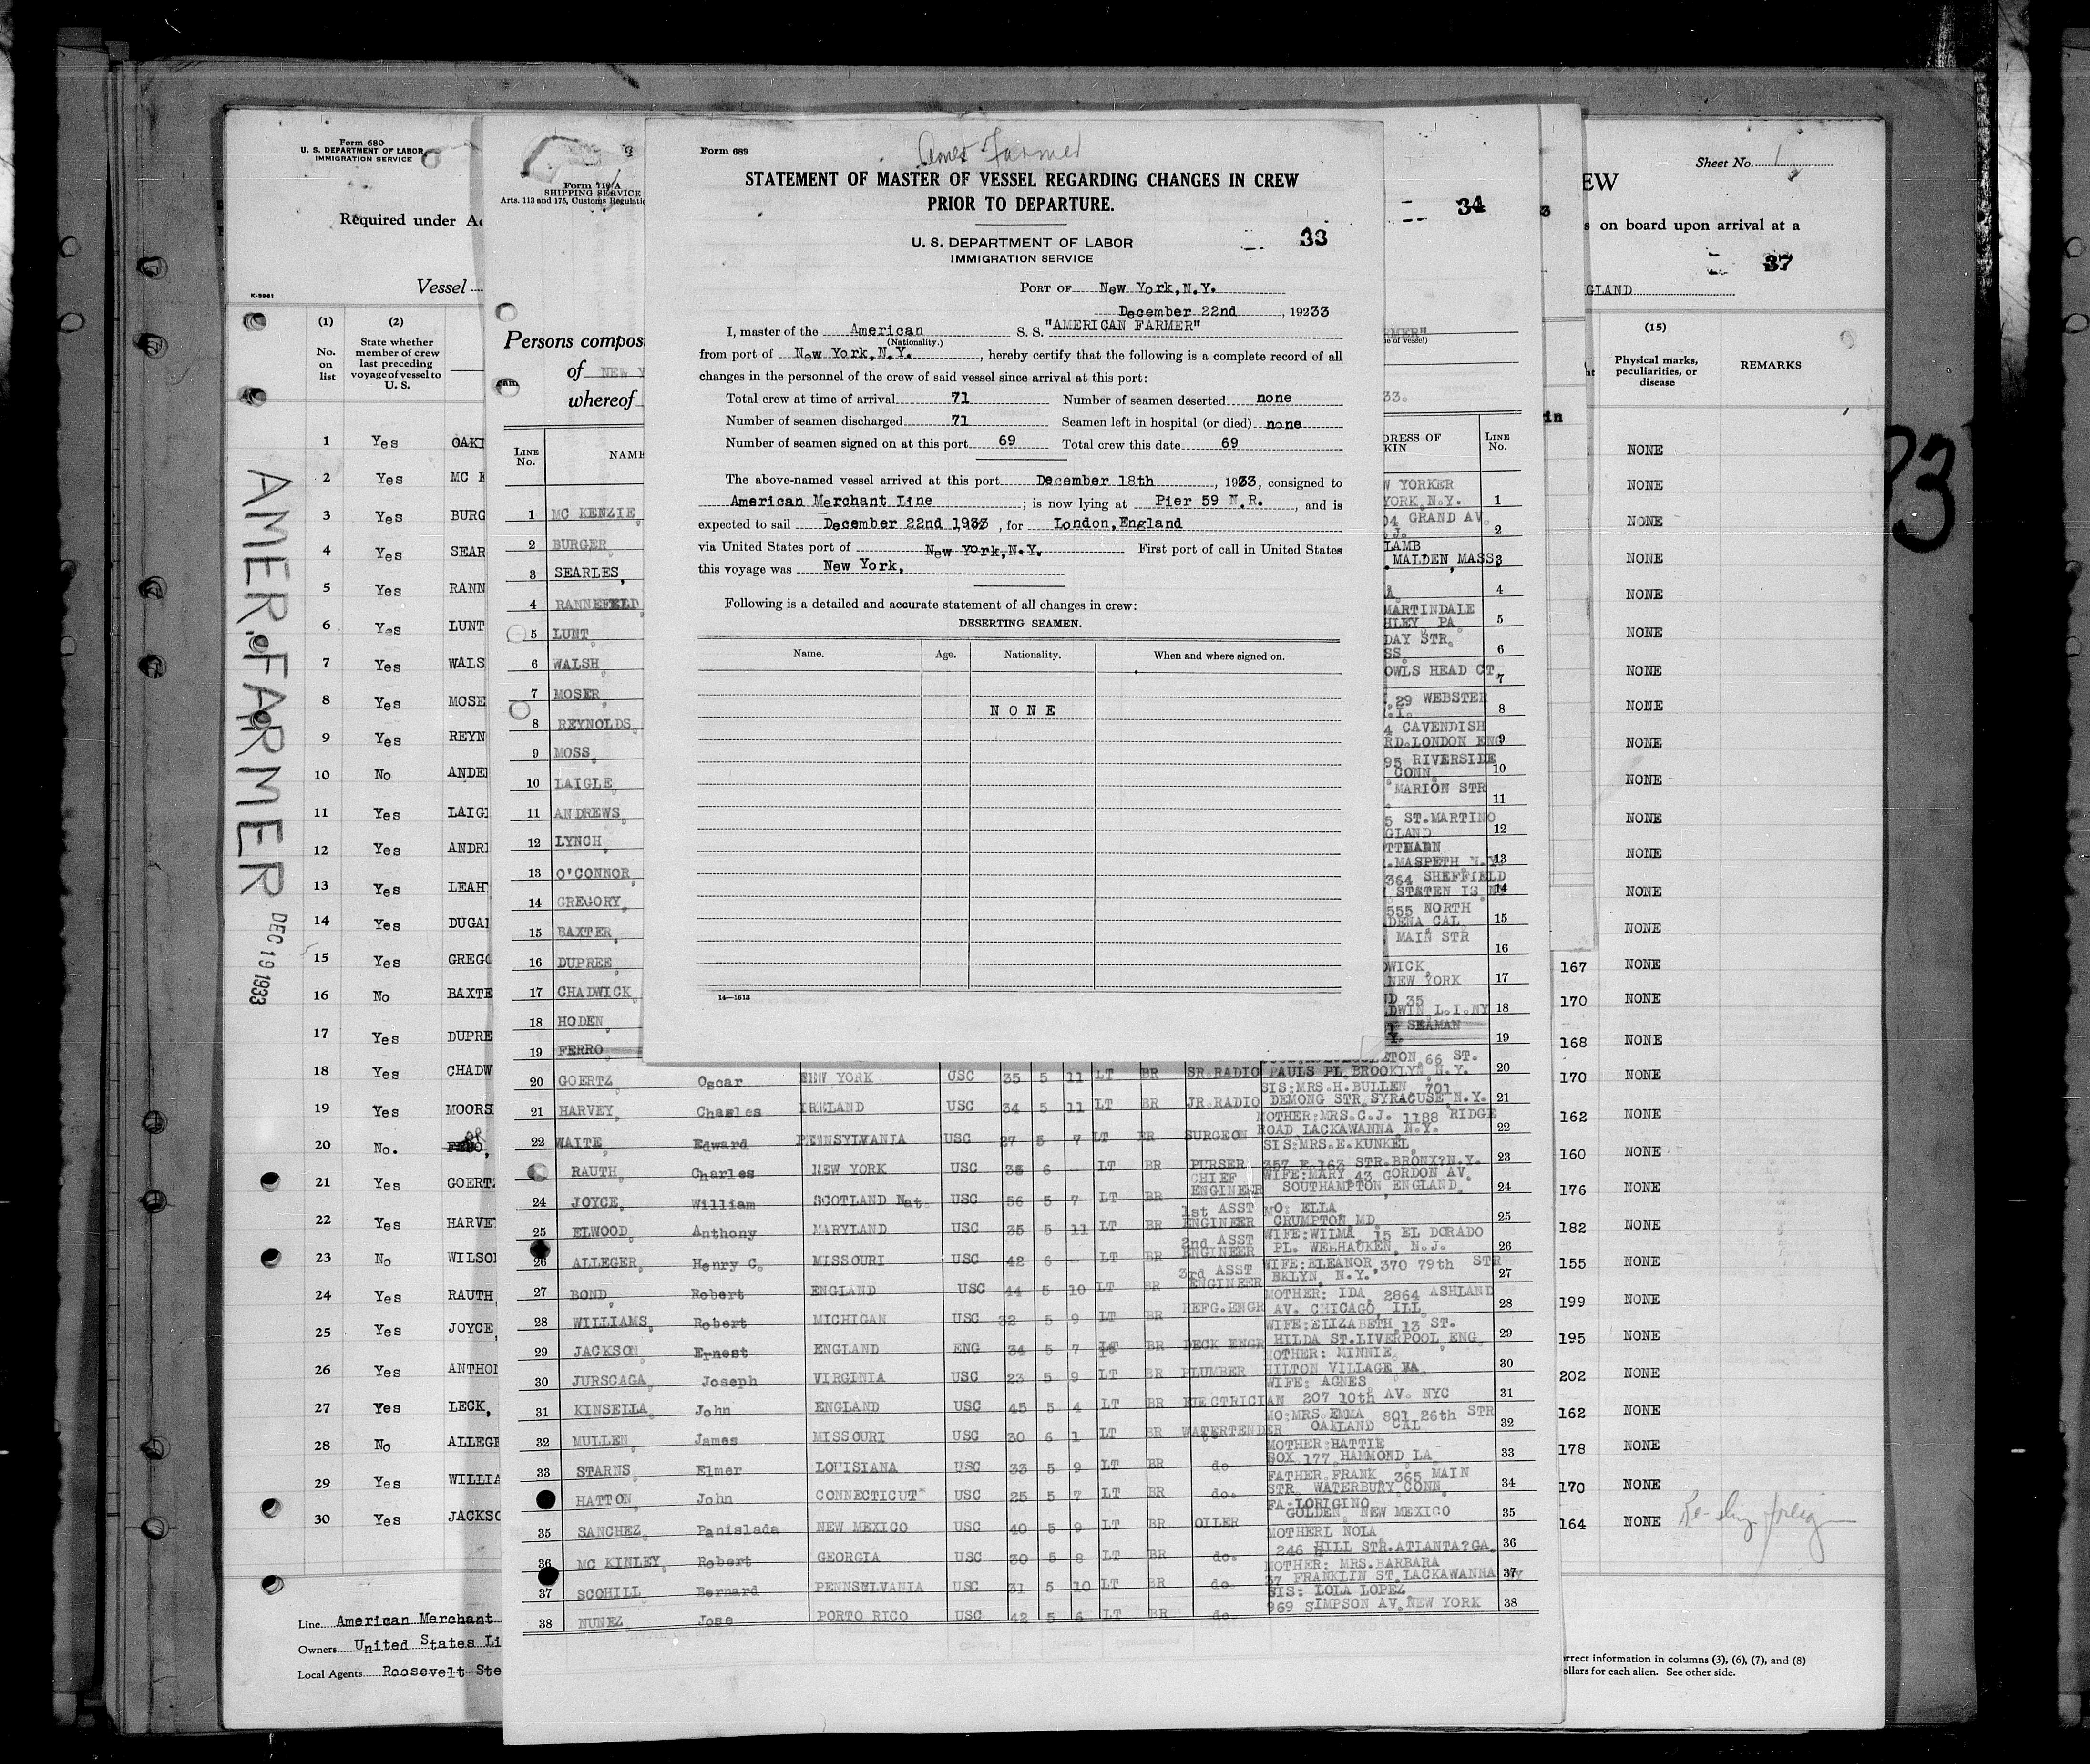 Form 680
U. S. DEPARTMENT OF LABOR
IMMIGRATION SERVICE
Required under
Vessel
K-3961
(1)
No. on list
(2)
State whether member of crew last preceding voyage of vessel to U. S.
1 Yes OAKI
2 Yes MC K
3 Yes BURG
4 Yes SEAR
5 Yes RANN
6 Yes LUNT
7 Yes WALS
8 Yes MOSE
9 Yes REYN
10 No ANDE
11 Yes LAIG
12 Yes ANDR
13 Yes LEAH
14 Yes DUGA
15 Yes GREGO
16 No BAXTE
17 Yes DUPRE
18 Yes CHADW
19 Yes MOORS
20 No.
21 Yes GOERT
22 Yes HARVE
23 No WILSO
24 Yes RAUTH,
25 Yes JOYCE,
26 Yes ANTHO
27 Yes LECK,
28 No ALLEGE
29 Yes WILLIA
30 Yes JACKSO
Line American Merchant
Owners United States Li
Local Agents Roosevelt Ste
AMER. FARMER
DEC 19 1933
Form 710 A
SHIPPING SERVICE
Arts. 113 and 175, Customs Regulatio
Persons compos
of NEW Y
whereof
LINE No.
NAME
1 MC KENZIE,
2 BURGER
3 SEARLES,
4 RANNEFELD
5 LUNT,
6 WALSH,
7 MOSER
8 REYNOLDS,
9 MOSS,
10 LAIGLE,
11 ANDREWS,
12 LYNCH,
13 O'CONNOR,
14 GREGORY,
15 BAXTER,
16 DUPREE,
17 CHADWICK,
18 HODEN,
19 FERRO
Form 689
Amer Farmer
STATEMENT OF MASTER OF VESSEL REGARDING CHANGES IN CREW
PRIOR TO DEPARTURE.
U. S. DEPARTMENT OF LABOR
IMMIGRATION SERVICE
33
PORT OF New York, N.Y.
December 22nd, 19233
I, master of the American S. S. "AMERICAN FARMER"
(Nationality.)
from port of New York, N.Y., hereby certify that the following is a complete record of all
changes in the personnel of the crew of said vessel since arrival at this port:
Total crew at time of arrival 71 Number of seamen deserted none
Number of seamen discharged 71 Seamen left in hospital (or died) none
Number of seamen signed on at this port 69 Total crew this date 69
The above-named vessel arrived at this port December 18th, 1933, consigned to
American Merchant Line; is now lying at Pier 59 N.R., and is
expected to sail December 22nd 1933, for London, England
via United States port of New York, N.Y. First port of call in United States
this voyage was New York,
Following is a detailed and accurate statement of all changes in crew:
DESERTING SEAMEN.
Name. Age. Nationality. When and where signed on.
NONE
14—1613
34
33.
DRESS OF
KIN
LINE No.
W YORKER
YORK, N.Y. 1
GRAND AV. 2
LAMB
MALDEN, MASS, 3
4
MARTINDALE
HLEY PA. 5
DAY STR,
SS. 6
OWLS HEAD CT, 7
29 WEBSTER
8
4 CAVENDISH
RD. LONDON ENG 9
95 RIVERSIDE
CONN. 10
MARION STR
11
5 ST. MARTINO
GLAND 12
MASPETH N.Y. 13
364 SHEFFIELD
STATEN IS 14
555 NORTH
DENA CAL. 15
MAIN STR
16
WICK,
NEW YORK 17
35
DWIN L.I. NY 18
SEAMAN
19
20 GOERTZ, Oscar NEW YORK USC 35 5 11 LT BR SR. RADIO 66 ST. PAULS PL. BROOKLYN, N.Y. 20
21 HARVEY, Charles IRELAND USC 34 5 11 LT BR JR. RADIO SIS: MRS. H. BULLEN 701 DEMONG STR. SYRACUSE, N.Y. 21
22 WAITE, Edward PENNSYLVANIA USC 27 5 7 LT BR SURGEON MOTHER: MRS. C.J. 1188 RIDGE ROAD LACKAWANNA N.Y. 22
RAUTH, Charles NEW YORK USC 35 6 LT BR PURSER SIS: MRS. E. KUNKEL, 357 E. 163 STR. BRONX?N.Y. 23
24 JOYCE, William SCOTLAND Nat. USC 56 5 7 LT BR CHIEF ENGINEER WIFE: MARY 43 GORDON AV. SOUTHAMPTON ENGLAND, 24
25 ELWOOD, Anthony MARYLAND USC 35 5 11 LT BR 1st ASST ENGINEER MO: ELLA CRUMPTON, MD, 25
26 ALLEGER, Henry C. MISSOURI USC 42 6 LT BR 2nd ASST ENGINEER WIFE: WILMA, 15 EL DORADO PL. WEEHAUKEN, N.J. 26
27 BOND, Robert ENGLAND USC 44 5 10 LT BR 3rd ASST ENGINEER WIFE: ELEANOR, 370 79th STR BKLYN, N.Y. 27
28 WILLIAMS, Robert MICHIGAN USC 32 5 9 LT BR REFG. ENGR MOTHER: IDA, 2864 ASHLAND AV. CHICAGO, ILL, 28
29 JACKSON, Ernest ENGLAND ENG 34 5 7 BR DECK ENGR WIFE: ELIZABETH, 13 ST. HILDA ST. LIVERPOOL ENG, 29
30 JURSCAGA, Joseph VIRGINIA USC 23 5 9 LT BR PLUMBER MOTHER: MINNIE, HILTON VILLAGE VA 30
31 KINSELLA, John ENGLAND USC 45 5 4 LT BR ELECTRICIAN WIFE: AGNES 207 10th AV. NYC 31
32 MULLEN, James MISSOURI USC 30 6 1 LT BR WATERTENDER MO: MRS. EMMA 801 26th STR OAKLAND CAL 32
33 STARNS, Elmer LOUISIANA USC 33 5 9 LT BR do. MOTHER: HATTIE BOX 177, HAMMOND, LA, 33
HATTON, John CONNECTICUT USC 25 5 7 LT BR do. FATHER, FRANK, 365 MAIN STR. WATERBURY, CONN, 34
35 SANCHEZ, Panislada NEW MEXICO USC 40 5 9 LT BR OILER FA: LORIGINO, GOLDEN, NEW MEXICO 35
36 MC KINLEY, Robert GEORGIA USC 30 5 8 LT BR do. MOTHERL NOLA 246 HILL STR. ATLANTA?GA. 36
37 SCOHILL, Bernard PENNSYLVANIA USC 31 5 10 LT BR do. MOTHER: MRS. BARBARA 37 FRANKLIN ST. LACKAWANNA NY 37
38 NUNEZ, Jose PORTO RICO USC 42 5 6 LT BR do. SIS: LOLA LOPEZ 969 SIMPSON AV. NEW YORK 38
EW
Sheet No. 1
s on board upon arrival at a
37
GLAND
(15)
Physical marks, peculiarities, or disease
REMARKS
NONE
NONE
NONE
NONE
NONE
NONE
NONE
NONE
NONE
NONE
NONE
NONE
NONE
NONE
167 NONE
170 NONE
168 NONE
170 NONE
162 NONE
160 NONE
176 NONE
182 NONE
155 NONE
199 NONE
195 NONE
202 NONE
162 NONE
178 NONE
170 NONE
164 NONE
orrect information in columns (3), (6), (7), and (8)
ollars for each alien. See other side.